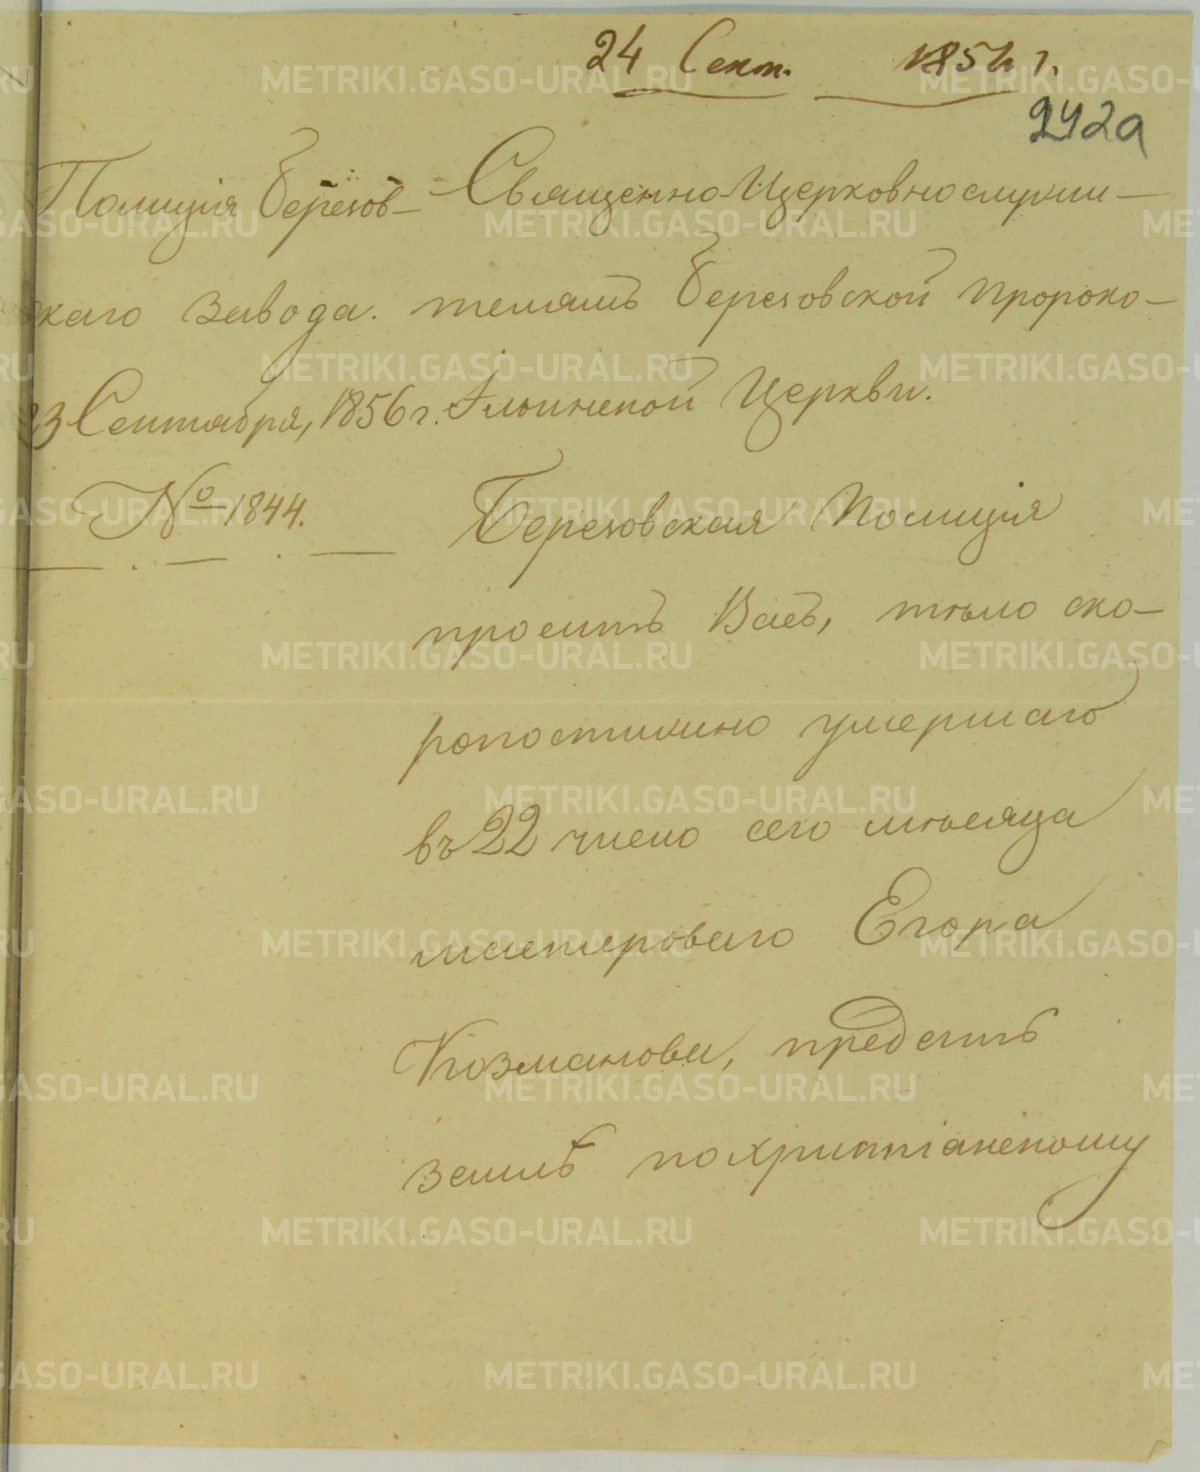 24 Сент. 1856 г.
242а
Полиція Березов-
скаго завода.
23 Сентября, 1856 г.
№ 1844.
Священно-Церковнослужи-
телямъ Березовской Пророко-
Ильинской Церкви.
Березовская Полиція
проситъ Васъ, тѣло ско-
ропостижно умершаго
въ 22 число сего мѣсяца
мастероваго Егора
Козманова, предать
землѣ похристіанскому
METRIKI.GASO-URAL.RU